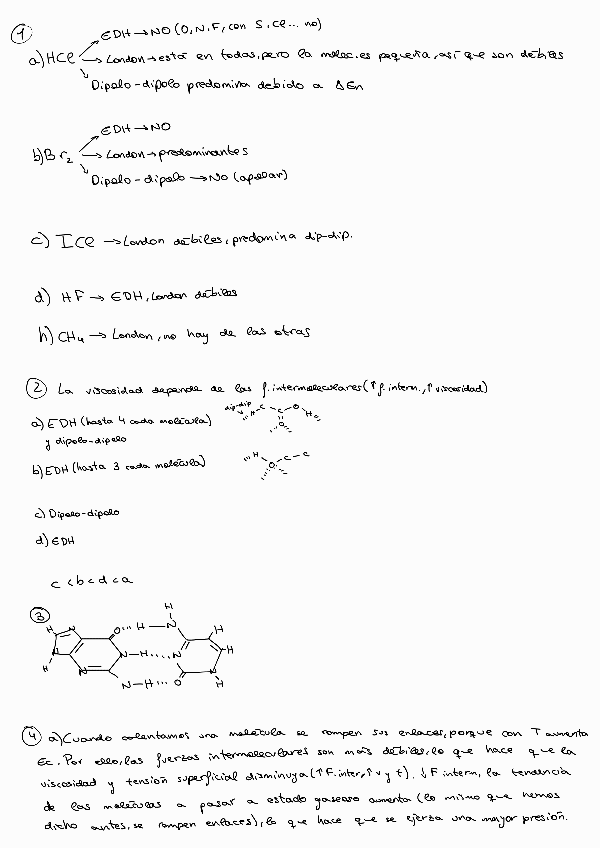 ①
EDH→NO (O, N, F, con S, Cl... no)
a) HCl → London → está en todas, pero la molec. es pequeña, así que son débiles
Dipolo-dipolo predomina debido a ΔEn
EDH → NO
b) Br₂ → London → predominantes
Dipolo-dipolo → NO (apolar)
c) ICl → London débiles, predomina dip-dip.
d) HF → EDH, London débiles
h) CH₄ → London, no hay de las otras
② La viscosidad depende de las f. intermoleculares (↑ f. interm., ↑ viscosidad)
a) EDH (hasta 4 cada molécula)
y dipolo-dipolo
dip-dip
H C C O H
O
b) EDH (hasta 3 cada molécula)
H O C C
c) Dipolo-dipolo
d) EDH
c < b < d < a
③
H
H N O ... H — N H
N N—H .... N H
H N N—H ... O N H
④ a) Cuando calentamos una molécula se rompen sus enlaces, porque con T aumenta
Ec. Por ello, las fuerzas intermoleculares son más débiles, lo que hace que la
viscosidad y tensión superficial disminuya (↑ F. inter, ↑ v y t). ↓ F interm, la tendencia
de las moléculas a pasar a estado gaseoso aumenta (lo mismo que hemos
dicho antes, se rompen enlaces), lo que hace que se ejerza una mayor presión.